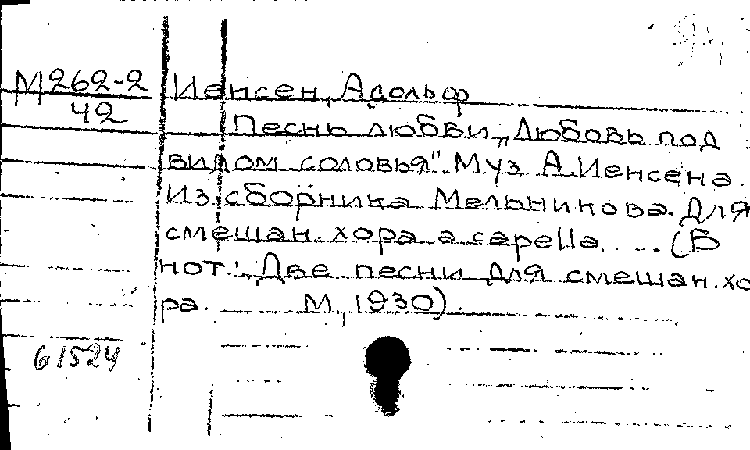 М262-2 Иенсен, Адольф
42
Песнь любви „Любовь под
видом соловья". Муз А. Иенсена.
Из сборника Мельникова. Для
смешан. хора a capella. ... (В
нот: „Две песни для смешан. хо
ра. М, 1930).
61524